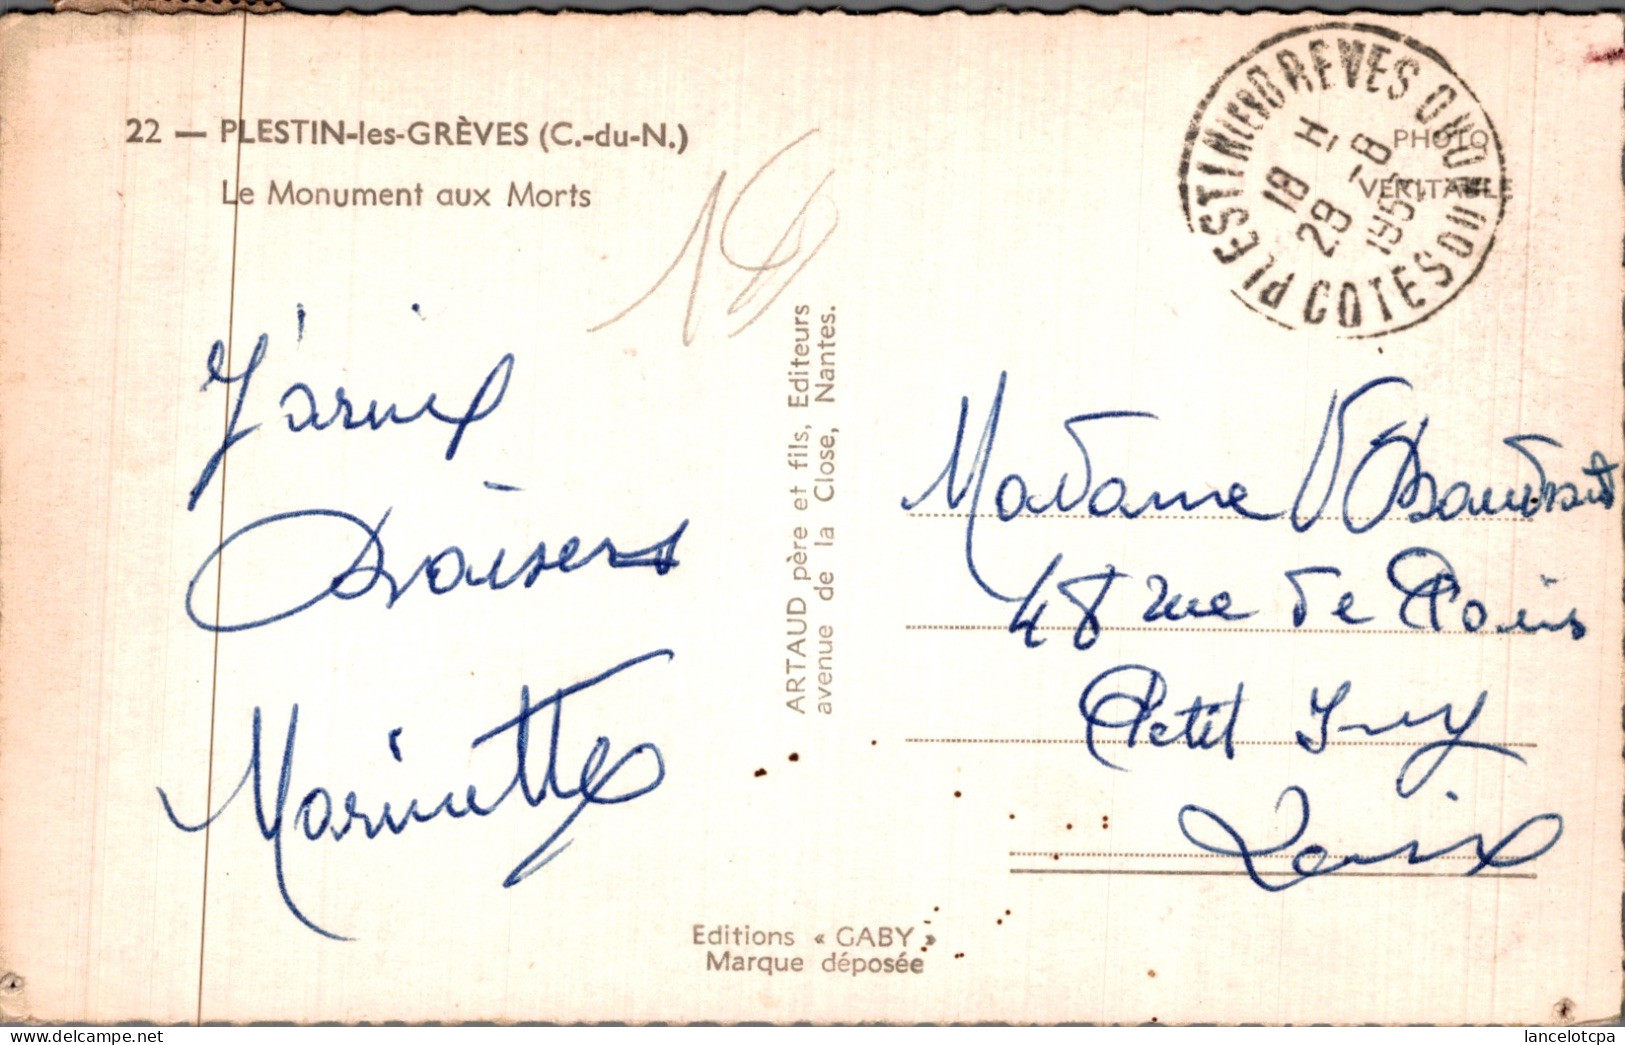 22 — PLESTIN-les-GRÈVES (C.-du-N.)
Le Monument aux Morts
PHOTO
VERITABLE
PLESTIN LES GREVES COTES DU NORD
18 H
29 -8
195
J'arrive
Baisers
Marinette
ARTAUD père et fils, Editeurs
avenue de la Close, Nantes.
Madame
48 rue de Paris
Petit Ivry
Seine
Editions « GABY »
Marque déposée
lancelotcpa